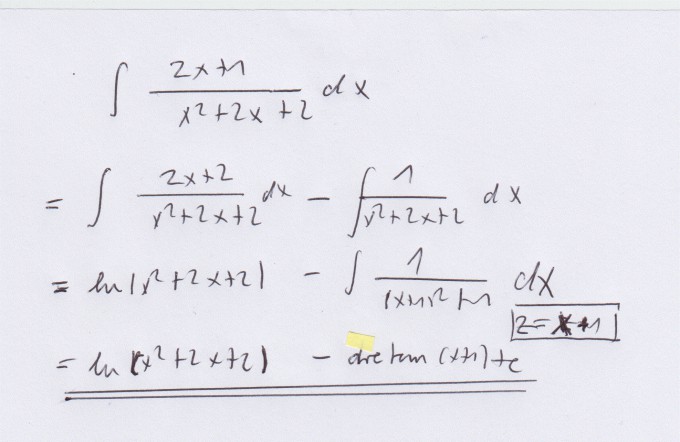 ∫ (2x+1)/(x²+2x+2) dx
= ∫ (2x+2)/(x²+2x+2) dx − ∫ 1/(x²+2x+2) dx
= ln|x²+2x+2| − ∫ 1/((x+1)²+1) dx
z=x+1
= ln(x²+2x+2) − arctan (x+1)+c